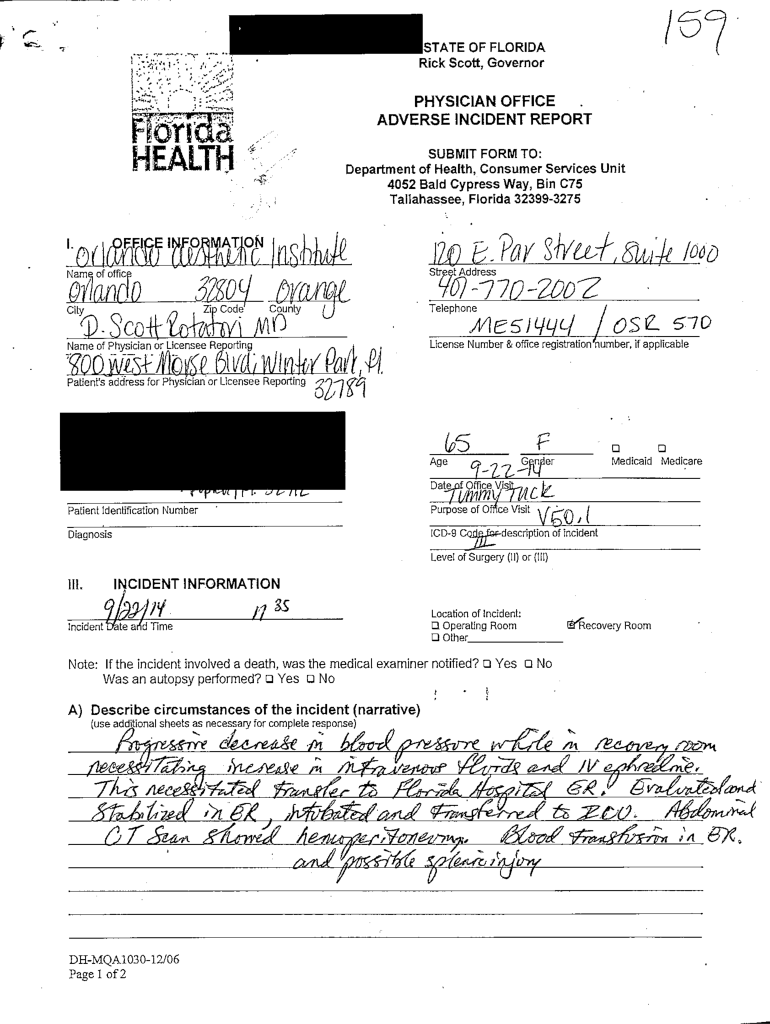 159
STATE OF FLORIDA
Rick Scott, Governor
Florida
HEALTH
PHYSICIAN OFFICE
ADVERSE INCIDENT REPORT
SUBMIT FORM TO:
Department of Health, Consumer Services Unit
4052 Bald Cypress Way, Bin C75
Tallahassee, Florida 32399-3275
I. OFFICE INFORMATION
Orlando Aesthetic Institute
120 E. Par Street, Suite 1000
Name of office
Street Address
Orlando 32804 Orange
407-770-2002
City Zip Code County
Telephone
D. Scott Rotatori MD
ME51444 / OSR 570
Name of Physician or Licensee Reporting
License Number & office registration number, if applicable
800 West Morse Blvd, Winter Park, Fl.
32789
Patient's address for Physician or Licensee Reporting
65 F
Age Gender Medicaid Medicare
9-22-14
Date of Office Visit
Tummy Tuck
Patient Identification Number
Purpose of Office Visit
V50.1
Diagnosis
ICD-9 Code for description of incident
III
Level of Surgery (II) or (III)
III. INCIDENT INFORMATION
9/22/14 17 35
Incident Date and Time
Location of Incident:
Operating Room Recovery Room
Other
Note: If the incident involved a death, was the medical examiner notified? Yes No
Was an autopsy performed? Yes No
A) Describe circumstances of the incident (narrative)
(use additional sheets as necessary for complete response)
Progressive decrease in blood pressure while in recovery room
necessitating increase in intravenous fluids and IV ephredine.
This necessitated transfer to Florida Hospital ER. Evaluated and
Stabilized in ER, intubated and transferred to ICU. Abdominal
CT Scan showed hemoperitoneum. Blood transfusion in ER.
and possible splenic injury
DH-MQA1030-12/06
Page 1 of 2